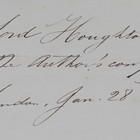 ord Houghto
the Author's com
ondon, Jan. 28